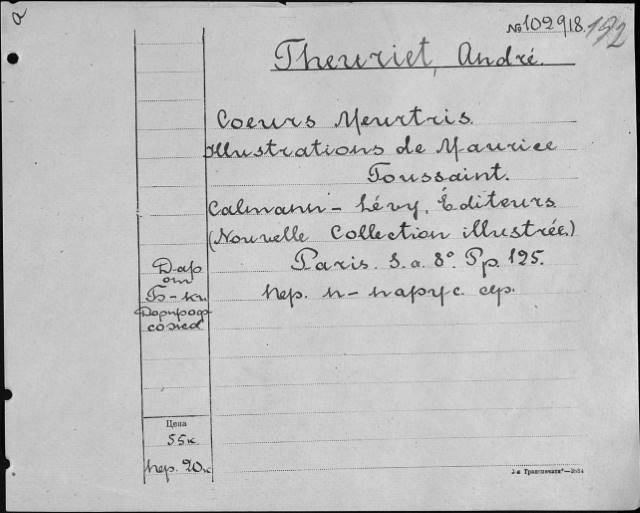 № 102918. 192
Theuriet, André.
Coeurs Meurtris.
Illustrations de Maurice
Toussaint.
Calmann-Lévy, Éditeurs
(Nouvelle Collection illustrée.)
Paris. S.a. 8° Pp. 125.
пер. п-парус. сер.
Дар
от
Б-ки
Цена
55к.
пер. 20к